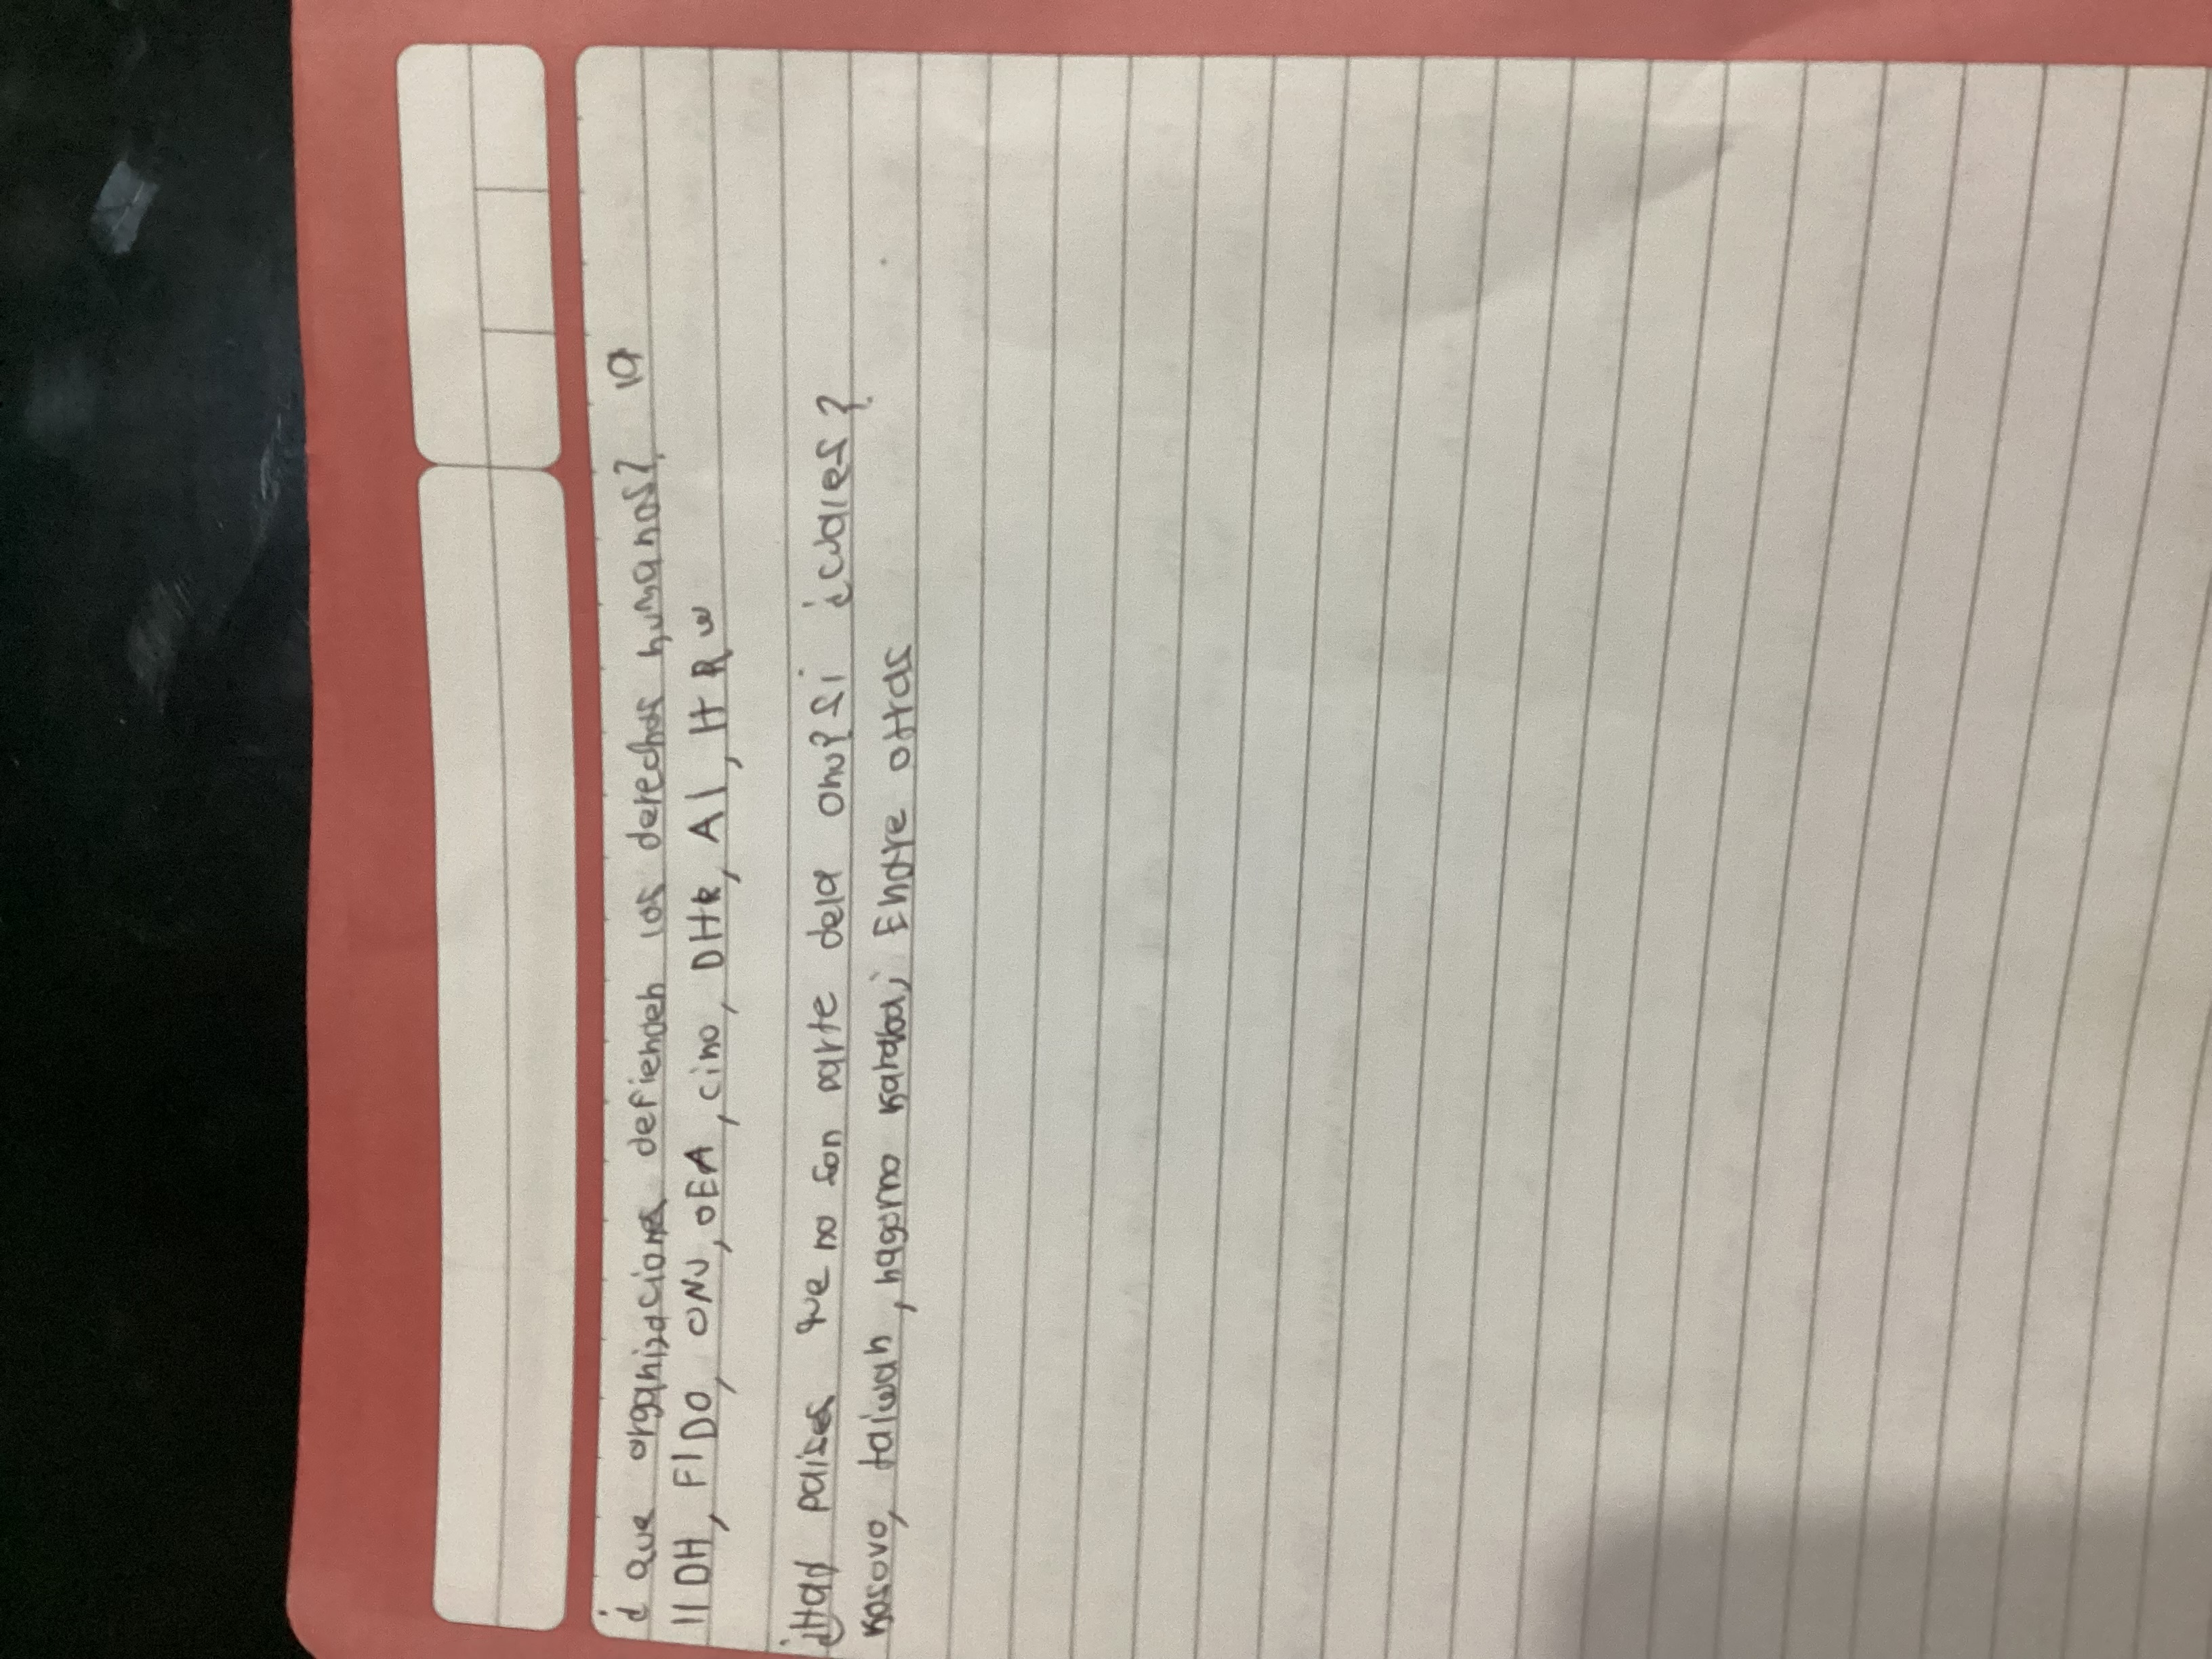 ¿que organizaciones defienden los derechos humanos? la
IIDH, FIDO, ONU, OEA, cino, DHR, AI, HRW
¿Hay paises que no son parte dela onu? Si ¿cuales?
Kosovo, taiwan, nagorno Karabaj Entre otras